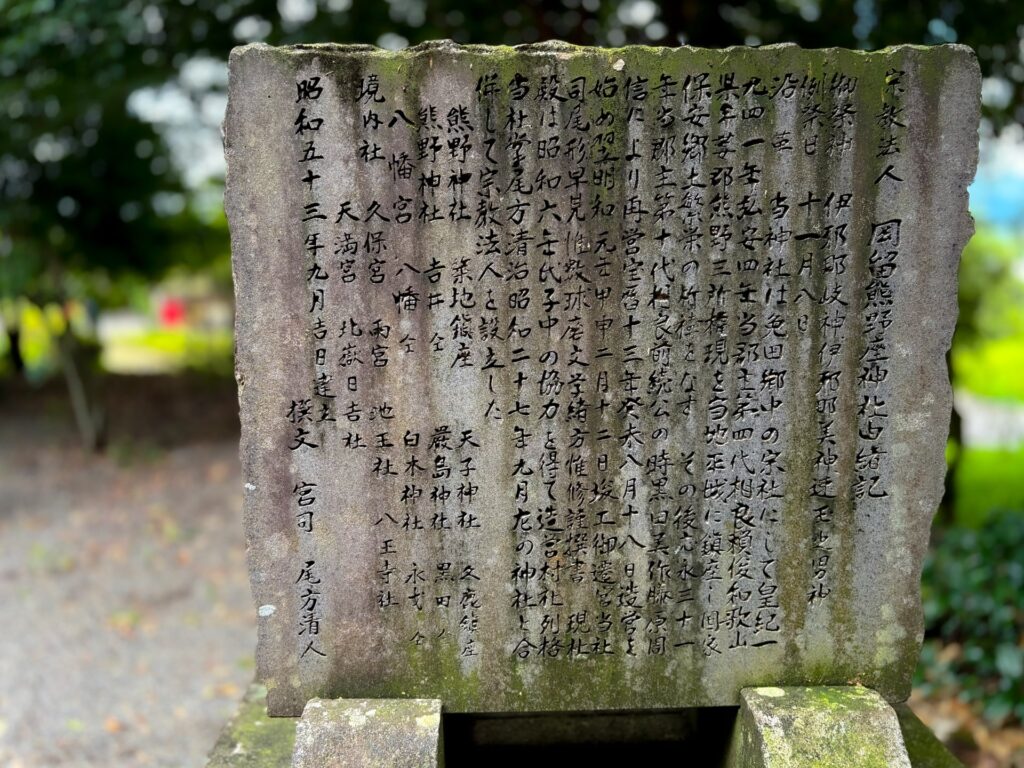 宗教法人 岡留熊野座神社由緒記
御祭神 伊邪那岐神伊邪那美神速玉之男神
例祭日 十一月八日
沿革 当神社は免田郷中の宗社にして皇紀一
九四一年弘安四年当郡主第四代相良頼俊和歌山
県牟婁郡熊野三所権現を当地正城に鎮座し国家
保安郷土繁栄の祈祷をなす その後元永三十一
年当郡主第十代相良前続公の時黒田美作藤原周
信により再営宝暦十三年癸未八月十八日造営を
始め翌明和元年甲申二月十二日竣工御遷宮当社
司尾形早見惟 球磨文学緒方惟修謹撰書 現社
殿は昭和六年氏子中の協力を得て造営村社列格
当社掌尾方清治昭和二十七年九月左の神社を合
併して宗教法人を設立した
熊野神社 築地熊座 天子神社 久鹿熊座
熊野神社 吉井仝 厳島神社 黒田〃
八幡宮 八幡仝 白木神社 永才仝
境内社 久保宮 雨宮 池王社 八王寺社
天満宮 北嶽日吉社
昭和五十三年九月吉日建立
撰文 宮司 尾方清人